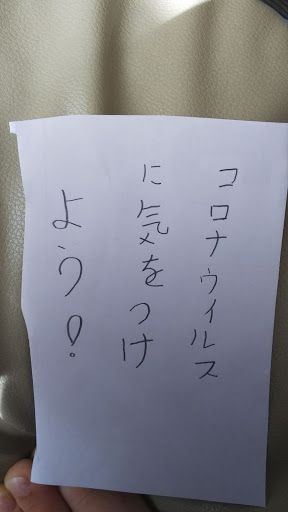 コロナウイルス
に気をつけ
よう!